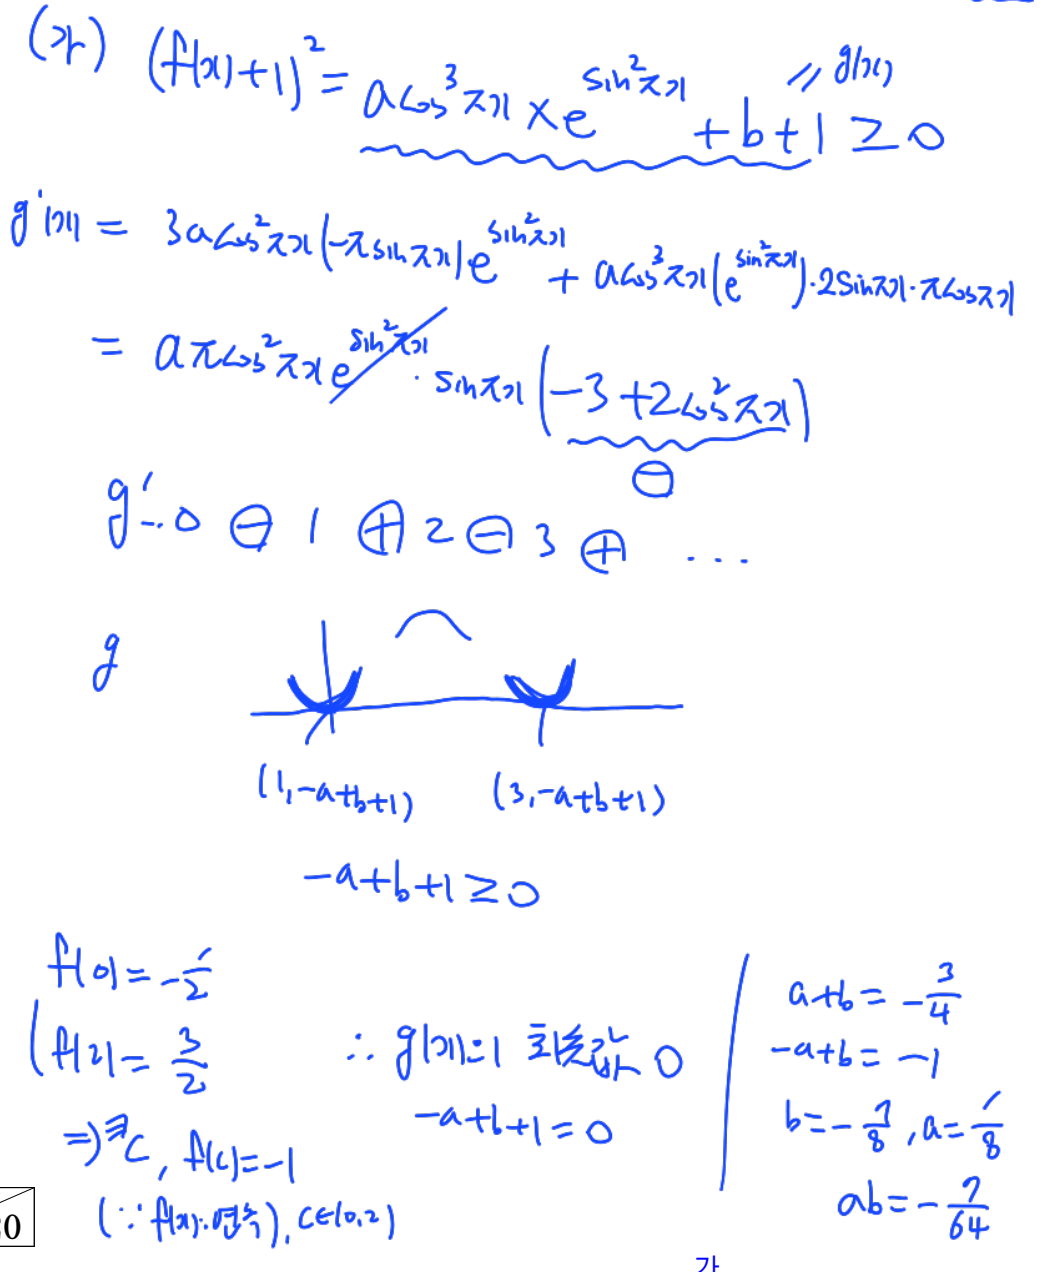 (가) (f(x)+1)² = a cos³πx × e^{sin²πx} + b + 1 ≥ 0
〃 g(x)
g'(x) = 3a cos²πx (-π sin πx) e^{sin²πx} + a cos³πx (e^{sin²πx}) · 2 sin πx · π cos πx
= aπ cos²πx e^{sin²πx} · sin πx (-3 + 2cos²πx)
⊖
g' : 0 ⊖ 1 ⊕ 2 ⊖ 3 ⊕ ...
g
(1, -a+b+1) (3, -a+b+1)
-a+b+1 ≥ 0
f(0) = -1/2
f(2) = 3/2
⇒ ∃c, f(c) = -1
(∵ f(x): 연속), c∈(0,2)
∴ g(x)=1 최솟값 0
-a+b+1 = 0
a+b = -3/4
-a+b = -1
b = -7/8, a = 1/8
ab = -7/64
가